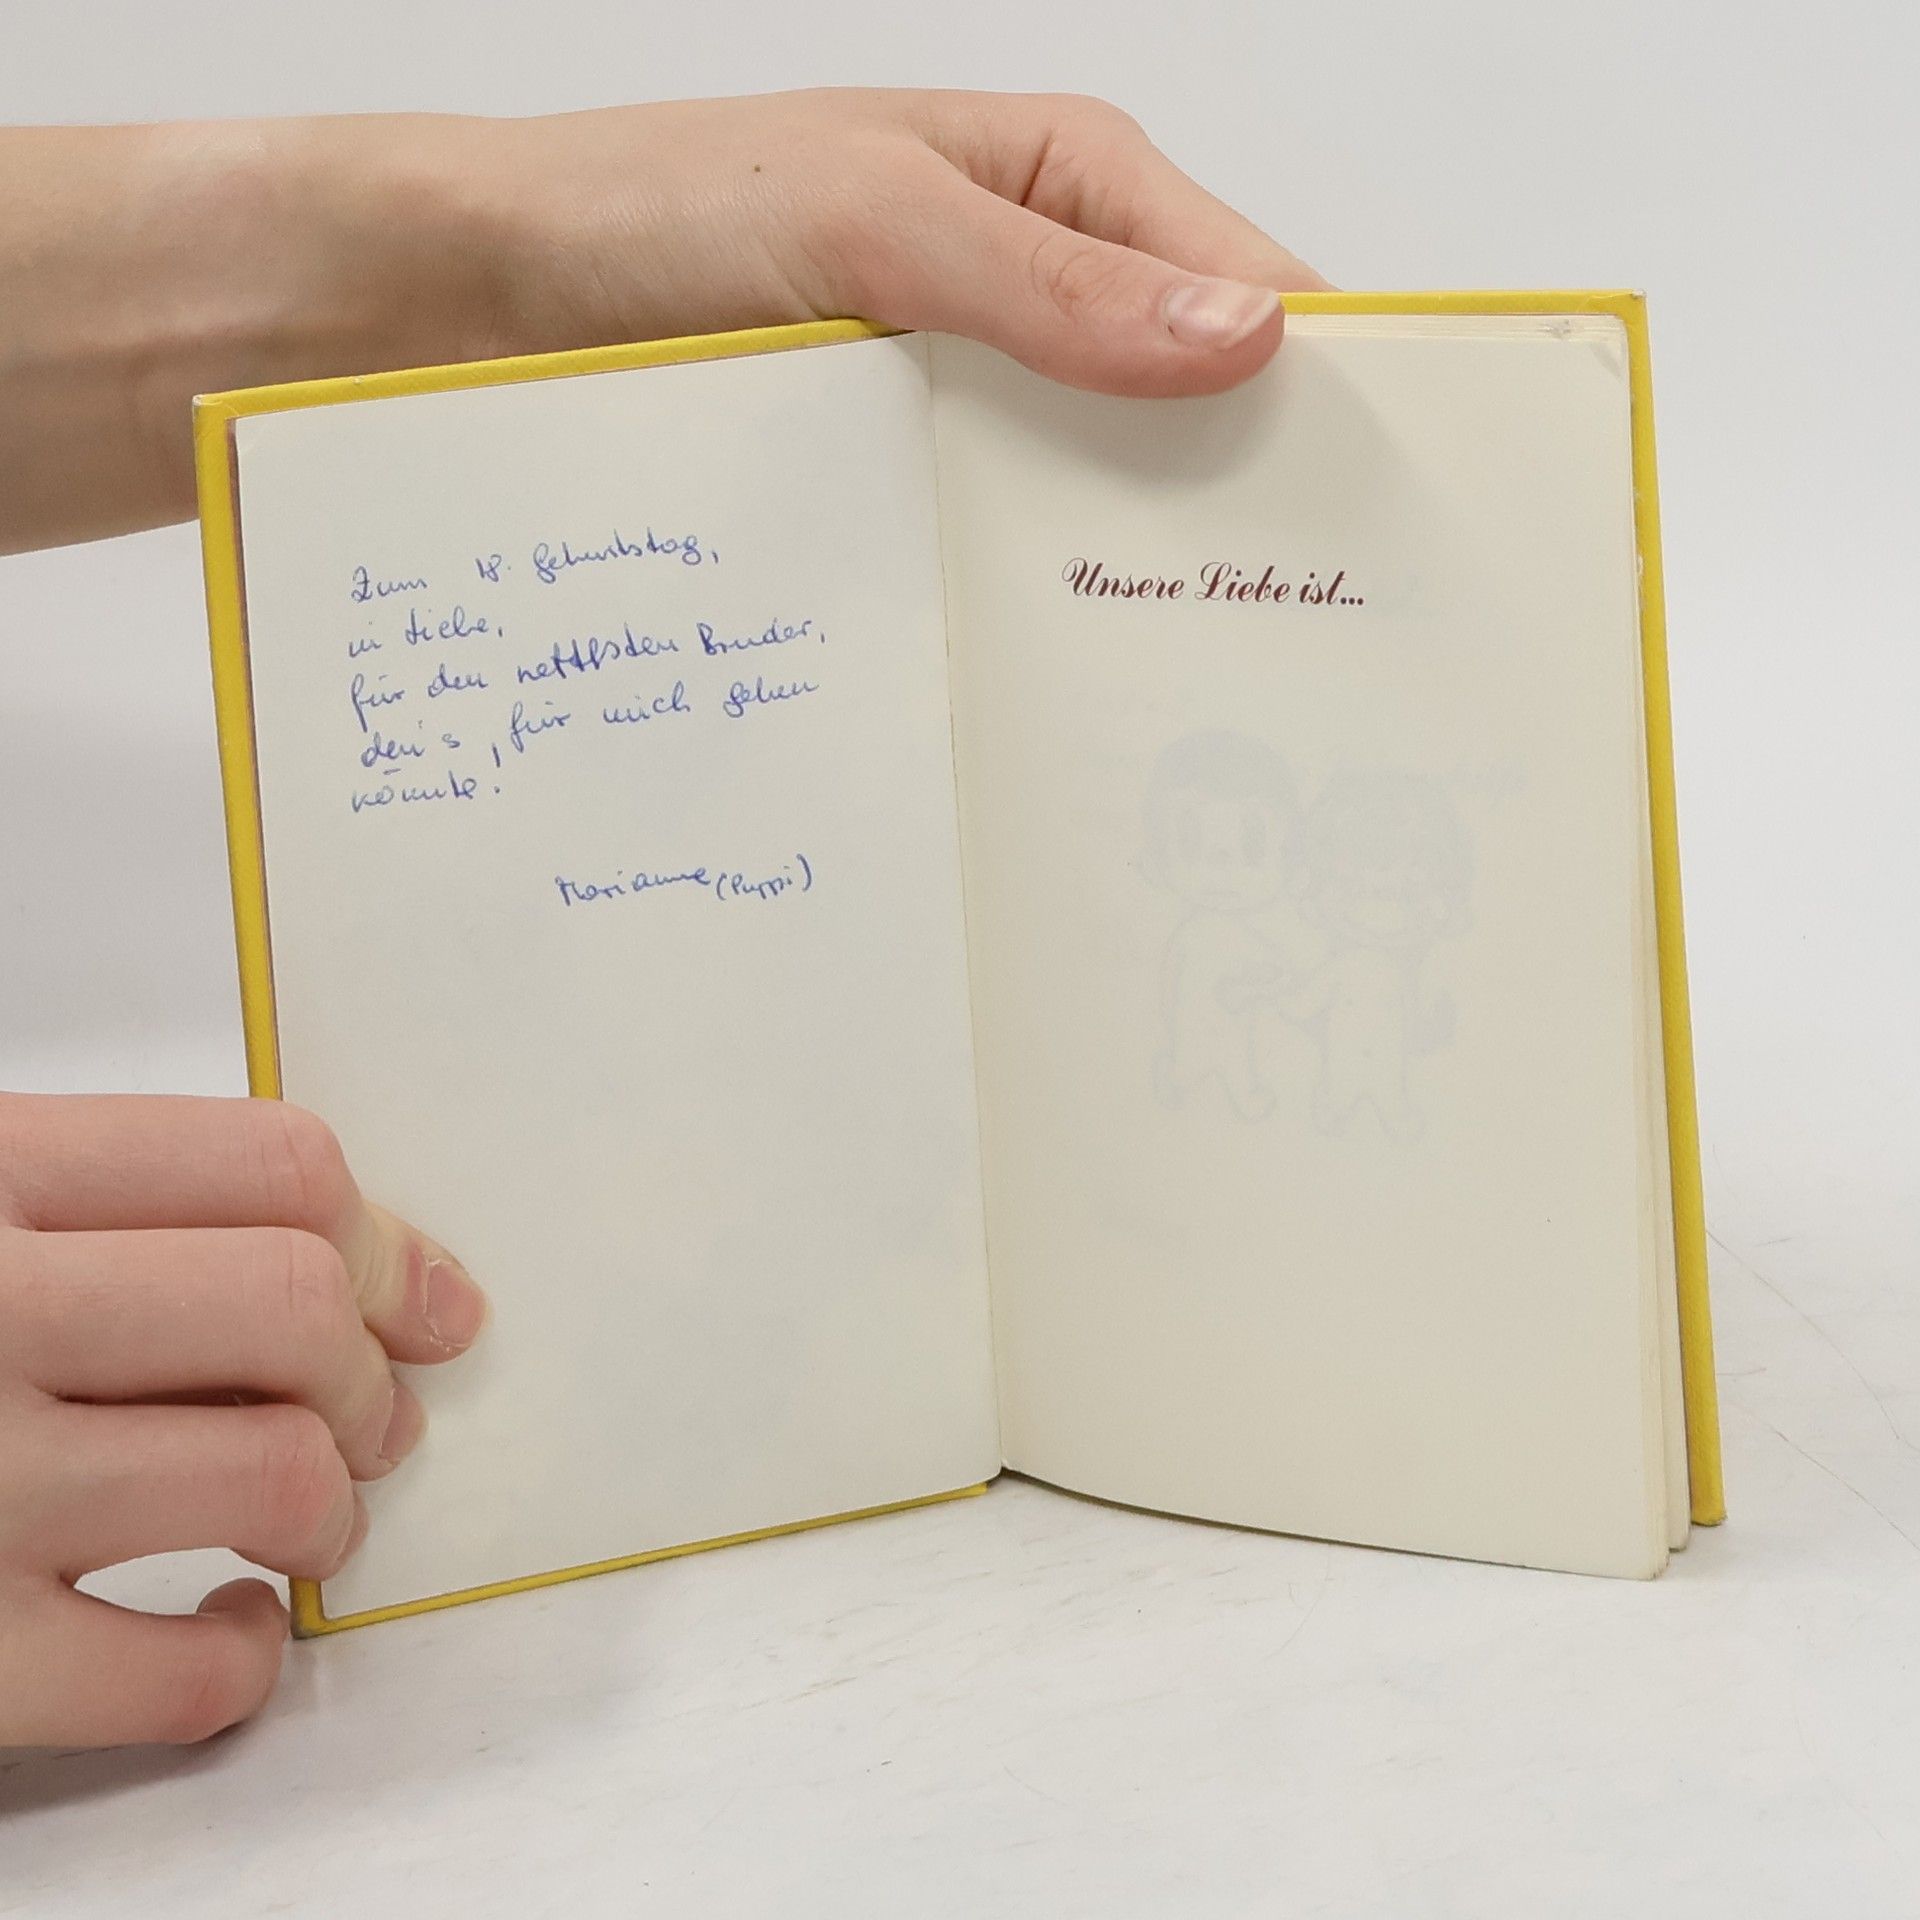 Zum 18. Geburtstag,
in Liebe,
für den nettesten Bruder,
den's, für mich geben
könnte!
Marianne (Puppi)
Unsere Liebe ist...